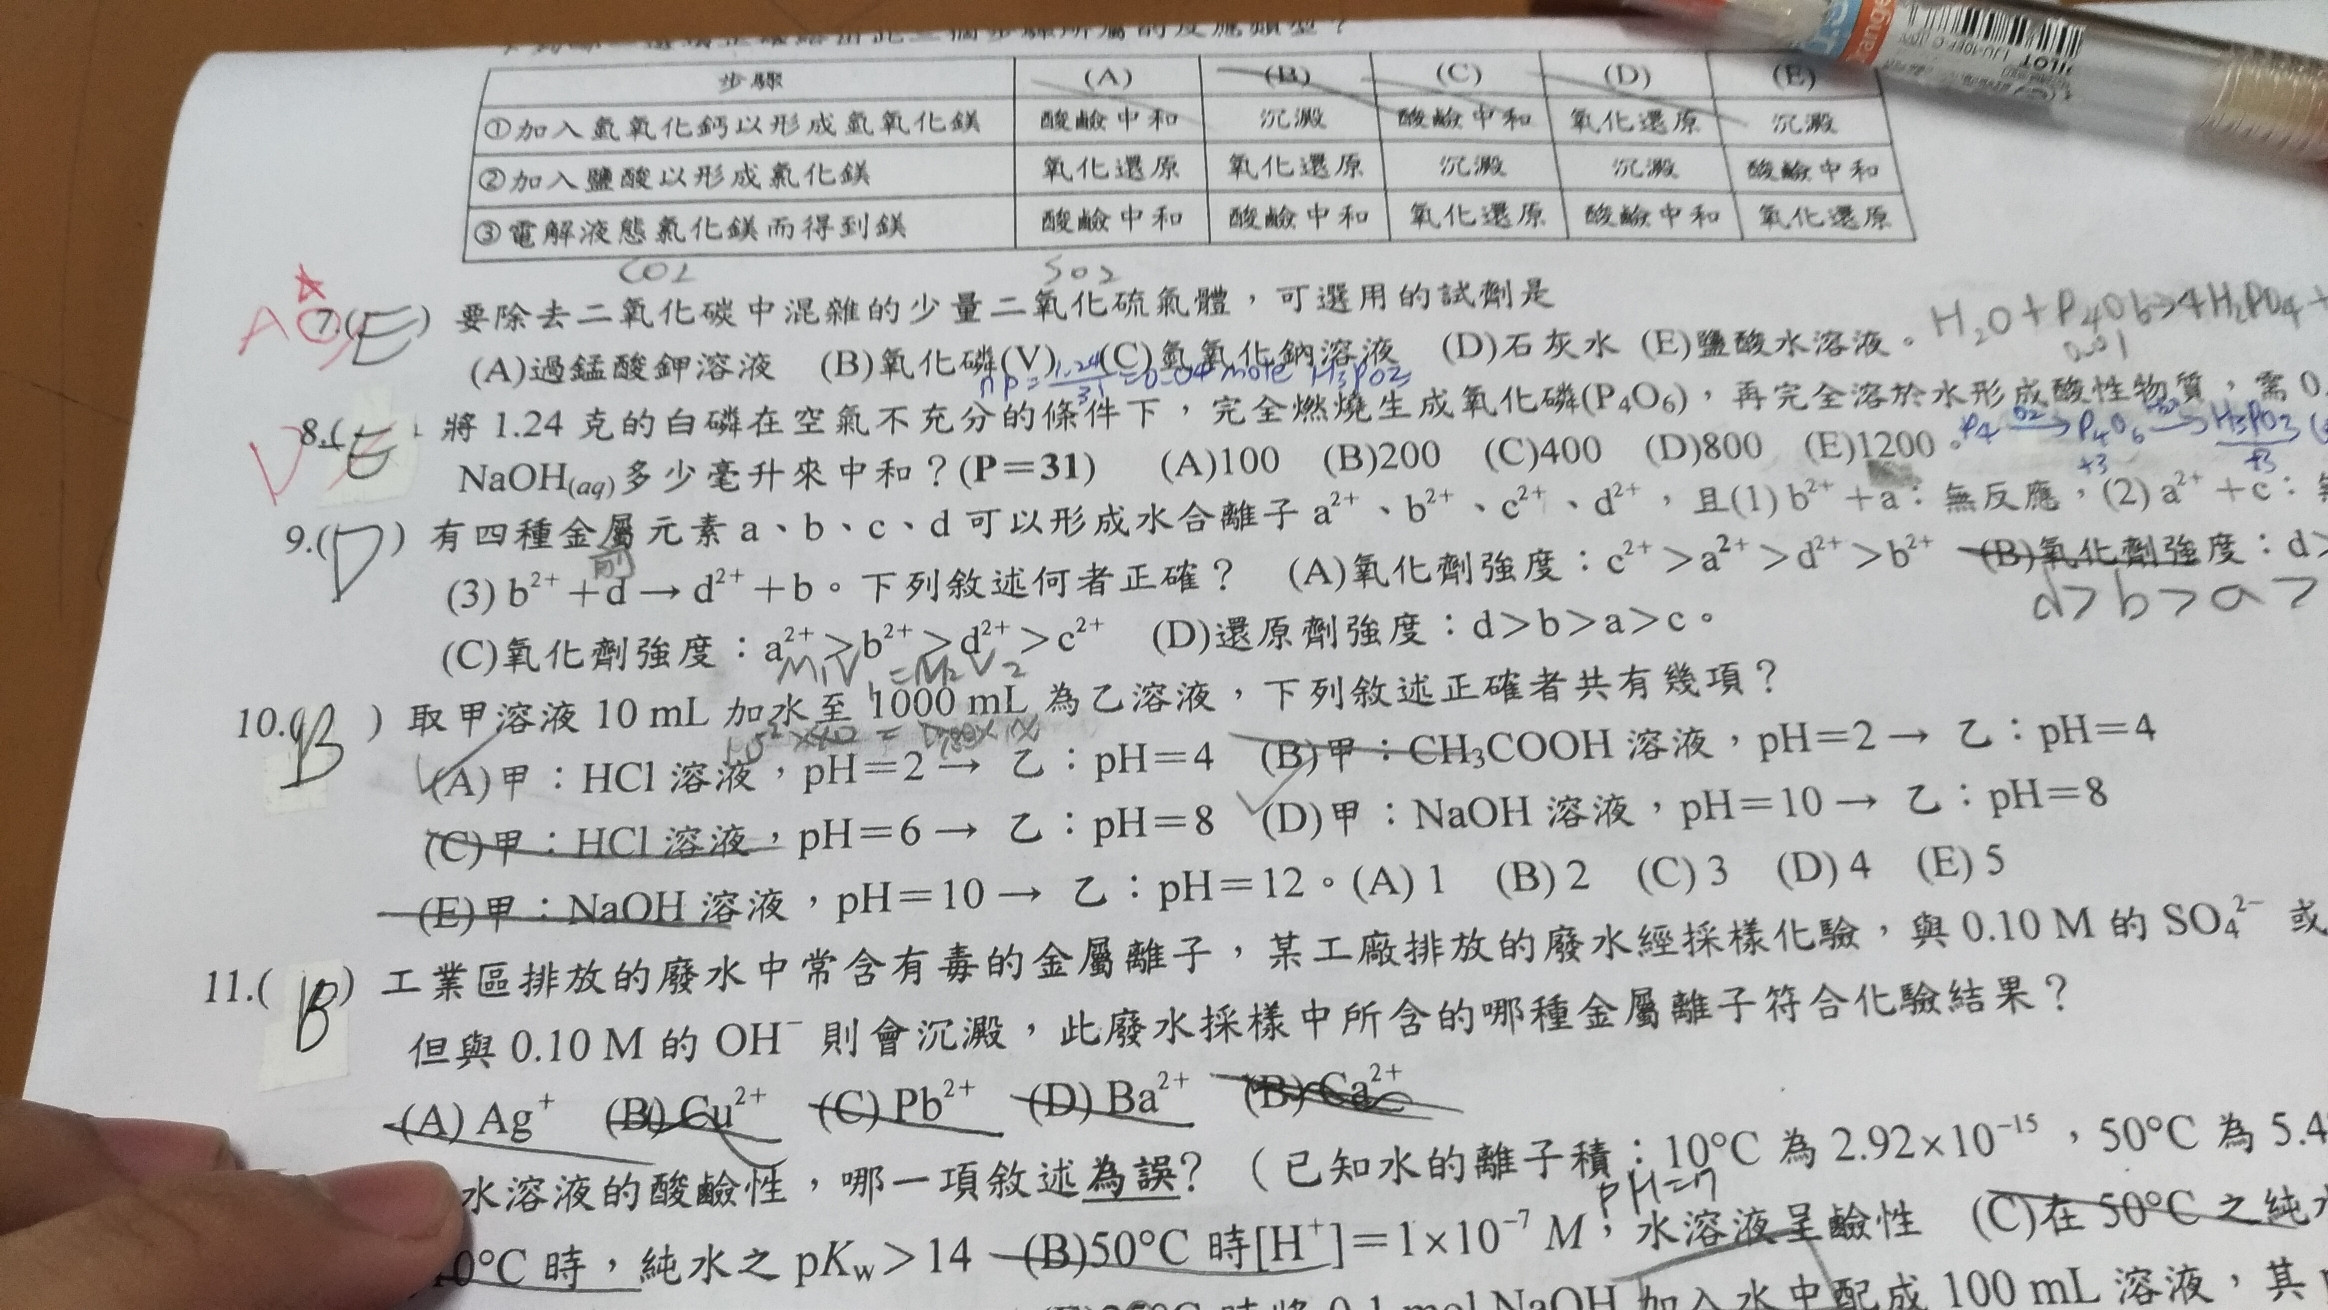 步驟 (A) (B) (C) (D) (E)
①加入氫氧化鈣以形成氫氧化鎂 酸鹼中和 沉澱 酸鹼中和 氧化還原 沉澱
②加入鹽酸以形成氯化鎂 氧化還原 氧化還原 沉澱 沉澱 酸鹼中和
③電解液態氯化鎂而得到鎂 酸鹼中和 酸鹼中和 氧化還原 酸鹼中和 氧化還原
CO2 SO2
A 7.(E) 要除去二氧化碳中混雜的少量二氧化硫氣體，可選用的試劑是
H2O+P4O6→4H2PO4+
(A)過錳酸鉀溶液 (B)氧化磷(V) (C)氫氧化鈉溶液 (D)石灰水 (E)鹽酸水溶液。
0.01
nP=1.24/31=0.04 mole H3PO3
8.( 將 1.24 克的白磷在空氣不充分的條件下，完全燃燒生成氧化磷(P4O6)，再完全溶於水形成酸性物質，需 0.
NaOH(aq)多少毫升來中和？(P＝31) (A)100 (B)200 (C)400 (D)800 (E)1200。
P4 O2→ P4O6 → H3PO3
+3 +3
9.(D) 有四種金屬元素 a、b、c、d 可以形成水合離子 a2+、b2+、c2+、d2+，且(1) b2+＋a：無反應，(2) a2+＋c：
前
(3) b2+＋d→d2+＋b。下列敘述何者正確？ (A)氧化劑強度：c2+＞a2+＞d2+＞b2+ (B)氧化劑強度：d＞
d>b>a>
(C)氧化劑強度：a2+＞b2+＞d2+＞c2+ (D)還原劑強度：d＞b＞a＞c。
M1V1=M2V2
10.(B) 取甲溶液 10 mL 加水至 1000 mL 為乙溶液，下列敘述正確者共有幾項？
(A)甲：HCl 溶液，pH＝2→ 乙：pH＝4 (B)甲：CH3COOH 溶液，pH＝2→ 乙：pH＝4
(C)甲：HCl 溶液，pH＝6→ 乙：pH＝8 (D)甲：NaOH 溶液，pH＝10→ 乙：pH＝8
(E)甲：NaOH 溶液，pH＝10→ 乙：pH＝12。(A) 1 (B) 2 (C) 3 (D) 4 (E) 5
11.(B) 工業區排放的廢水中常含有毒的金屬離子，某工廠排放的廢水經採樣化驗，與 0.10 M 的 SO4 2− 或
但與 0.10 M 的 OH− 則會沉澱，此廢水採樣中所含的哪種金屬離子符合化驗結果？
(A) Ag+ (B) Cu2+ (C) Pb2+ (D) Ba2+ (B) Ca2+
水溶液的酸鹼性，哪一項敘述為誤？（已知水的離子積：10°C 為 2.92×10−15，50°C 為 5.4
pH=7
0°C 時，純水之 pKw＞14 (B)50°C 時[H+]＝1×10−7 M，水溶液呈鹼性 (C)在 50°C 之純水
mol NaOH 加入水中配成 100 mL 溶液，其
PILOT